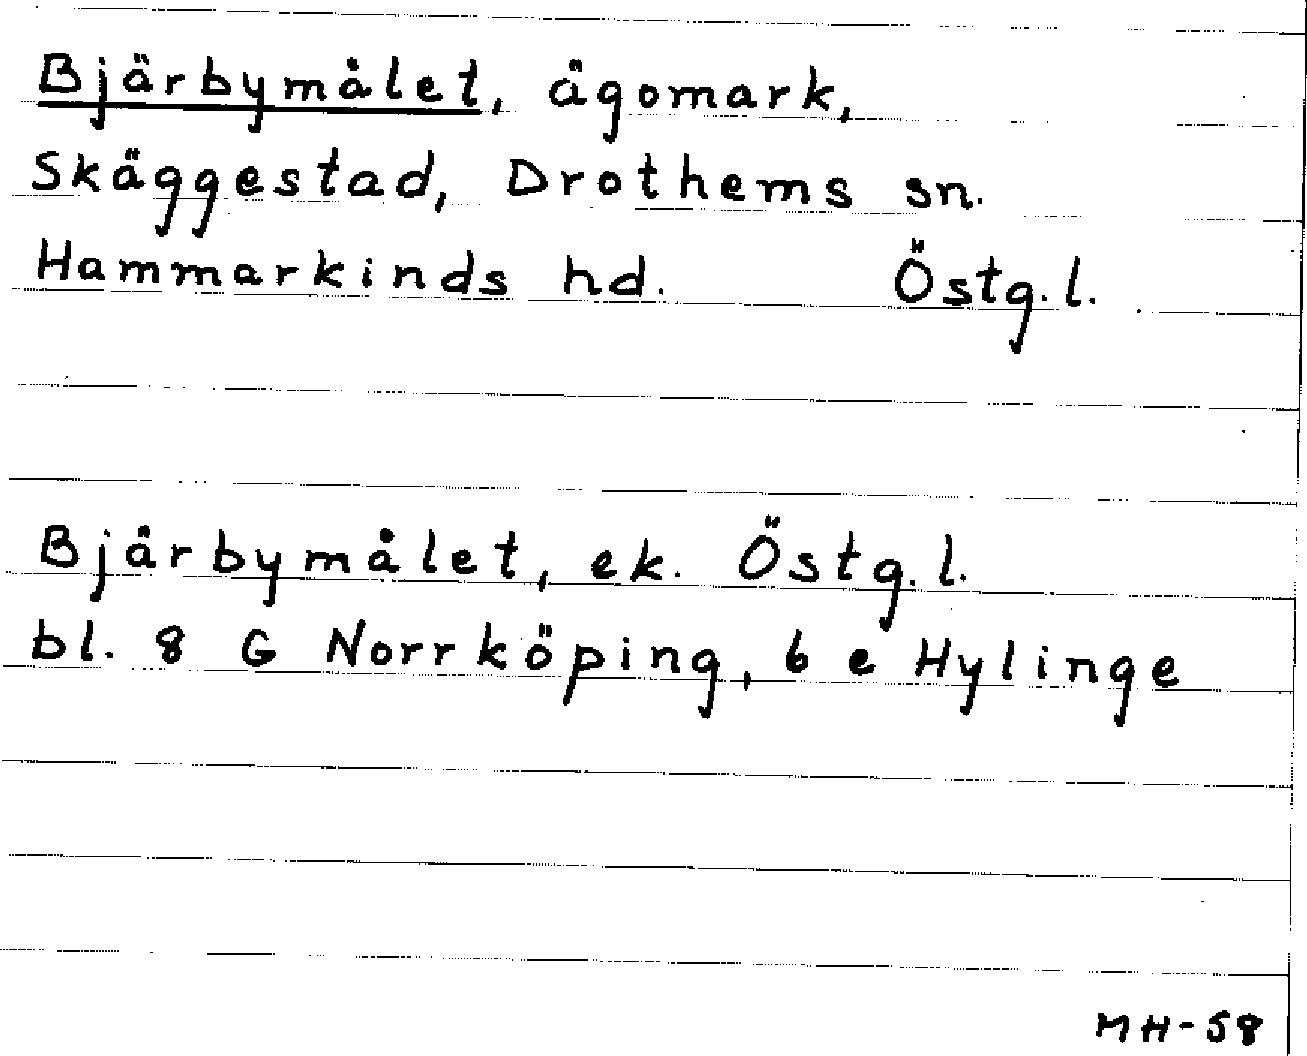 Bjärbymålet, ägomark,
Skäggestad, Drothems sn.
Hammarkinds hd. Östg.l.
Bjärbymålet, ek. Östg.l.
bl. 8 G Norrköping, 6 e Hylinge
MH-58